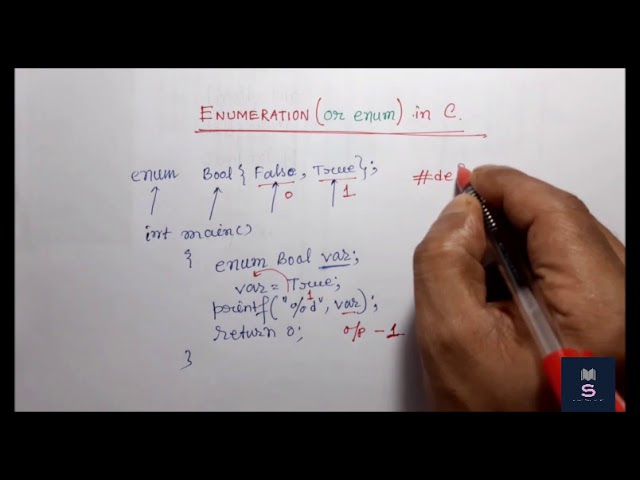 ENUMERATION (or enum) in C.
enum Bool { False, True }; #def
0 1
int main()
{ enum Bool var;
var = True;
1
printf("%d", var);
return 0; o/p - 1
}
S